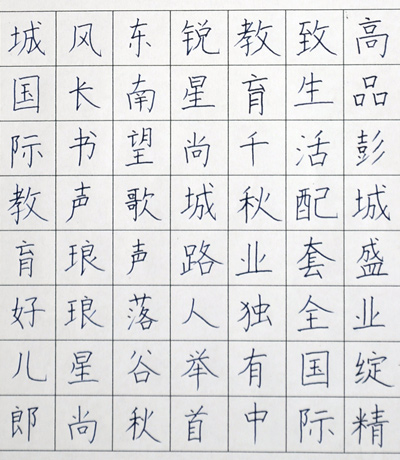 高品彭城盛业绽精
致生活配套全国际
教育千秋业独有中
锐星尚城路人举首
东南望歌声落谷秋
风长书声琅琅星尚
城国际教育好儿郎